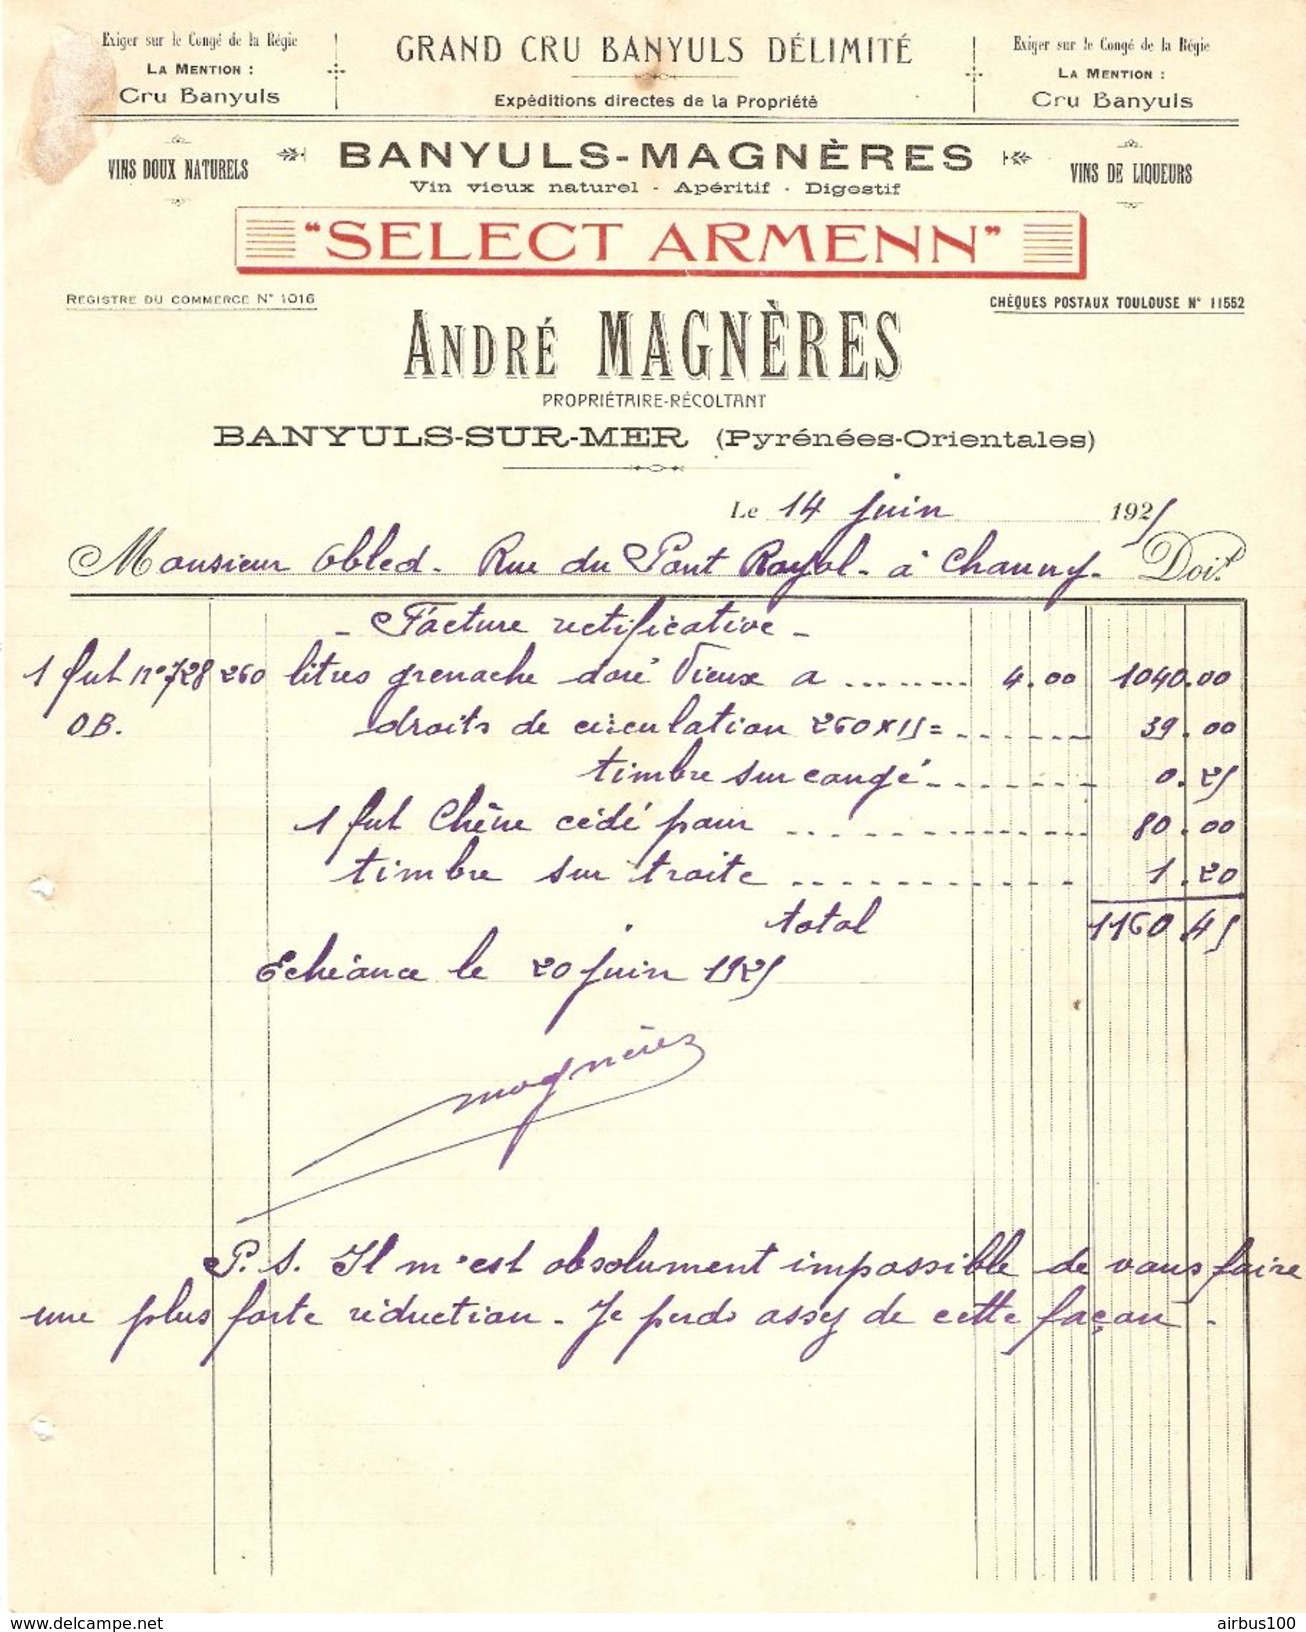 Exiger sur le Congé de la Régie
LA MENTION :
Cru Banyuls
GRAND CRU BANYULS DÉLIMITÉ
Expéditions directes de la Propriété
Exiger sur le Congé de la Régie
LA MENTION :
Cru Banyuls
VINS DOUX NATURELS
BANYULS-MAGNÈRES
Vin vieux naturel - Apéritif - Digestif
VINS DE LIQUEURS
"SELECT ARMENN"
REGISTRE DU COMMERCE N° 1016
CHÈQUES POSTAUX TOULOUSE N° 11552
ANDRÉ MAGNÈRES
PROPRIÉTAIRE-RÉCOLTANT
BANYULS-SUR-MER (Pyrénées-Orientales)
Le 14 juin 1925
Monsieur Obled. Rue du Pont Royal. à Chauny. Doit
- Facture rectificative -
1 fut n° 728 260 litres grenache doré Vieux a ........ 4.00 1040.00
OB. droits de circulation 260 x 15 = ....... 39.00
timbre sur congé ....... 0.25
1 fut Chêne cédé pour ............ 80.00
timbre sur traite ........... 1.20
total 1160.45
Echéance le 20 juin 1925
Magnères
P.S. Il m'est absolument impossible de vous faire
une plus forte réduction. Je perds assez de cette façon.
www.delcampe.net
airbus100